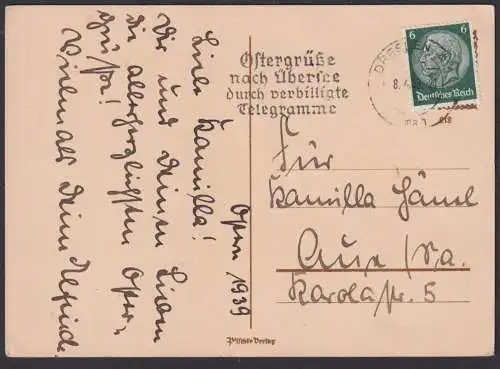 Liebe Kamilla!
Dir und Deinen Lieben
die allerherzlichsten Oster-
grüße!
Vielmals Deine
Ostern 1939
Ostergrüße
nach Übersee
durch verbilligte
Telegramme
DRESDEN
8.4
6
6
Deutsches Reich
Für
Kamilla Hänel
Aue / Sa.
Karolastr. 5
Verlag